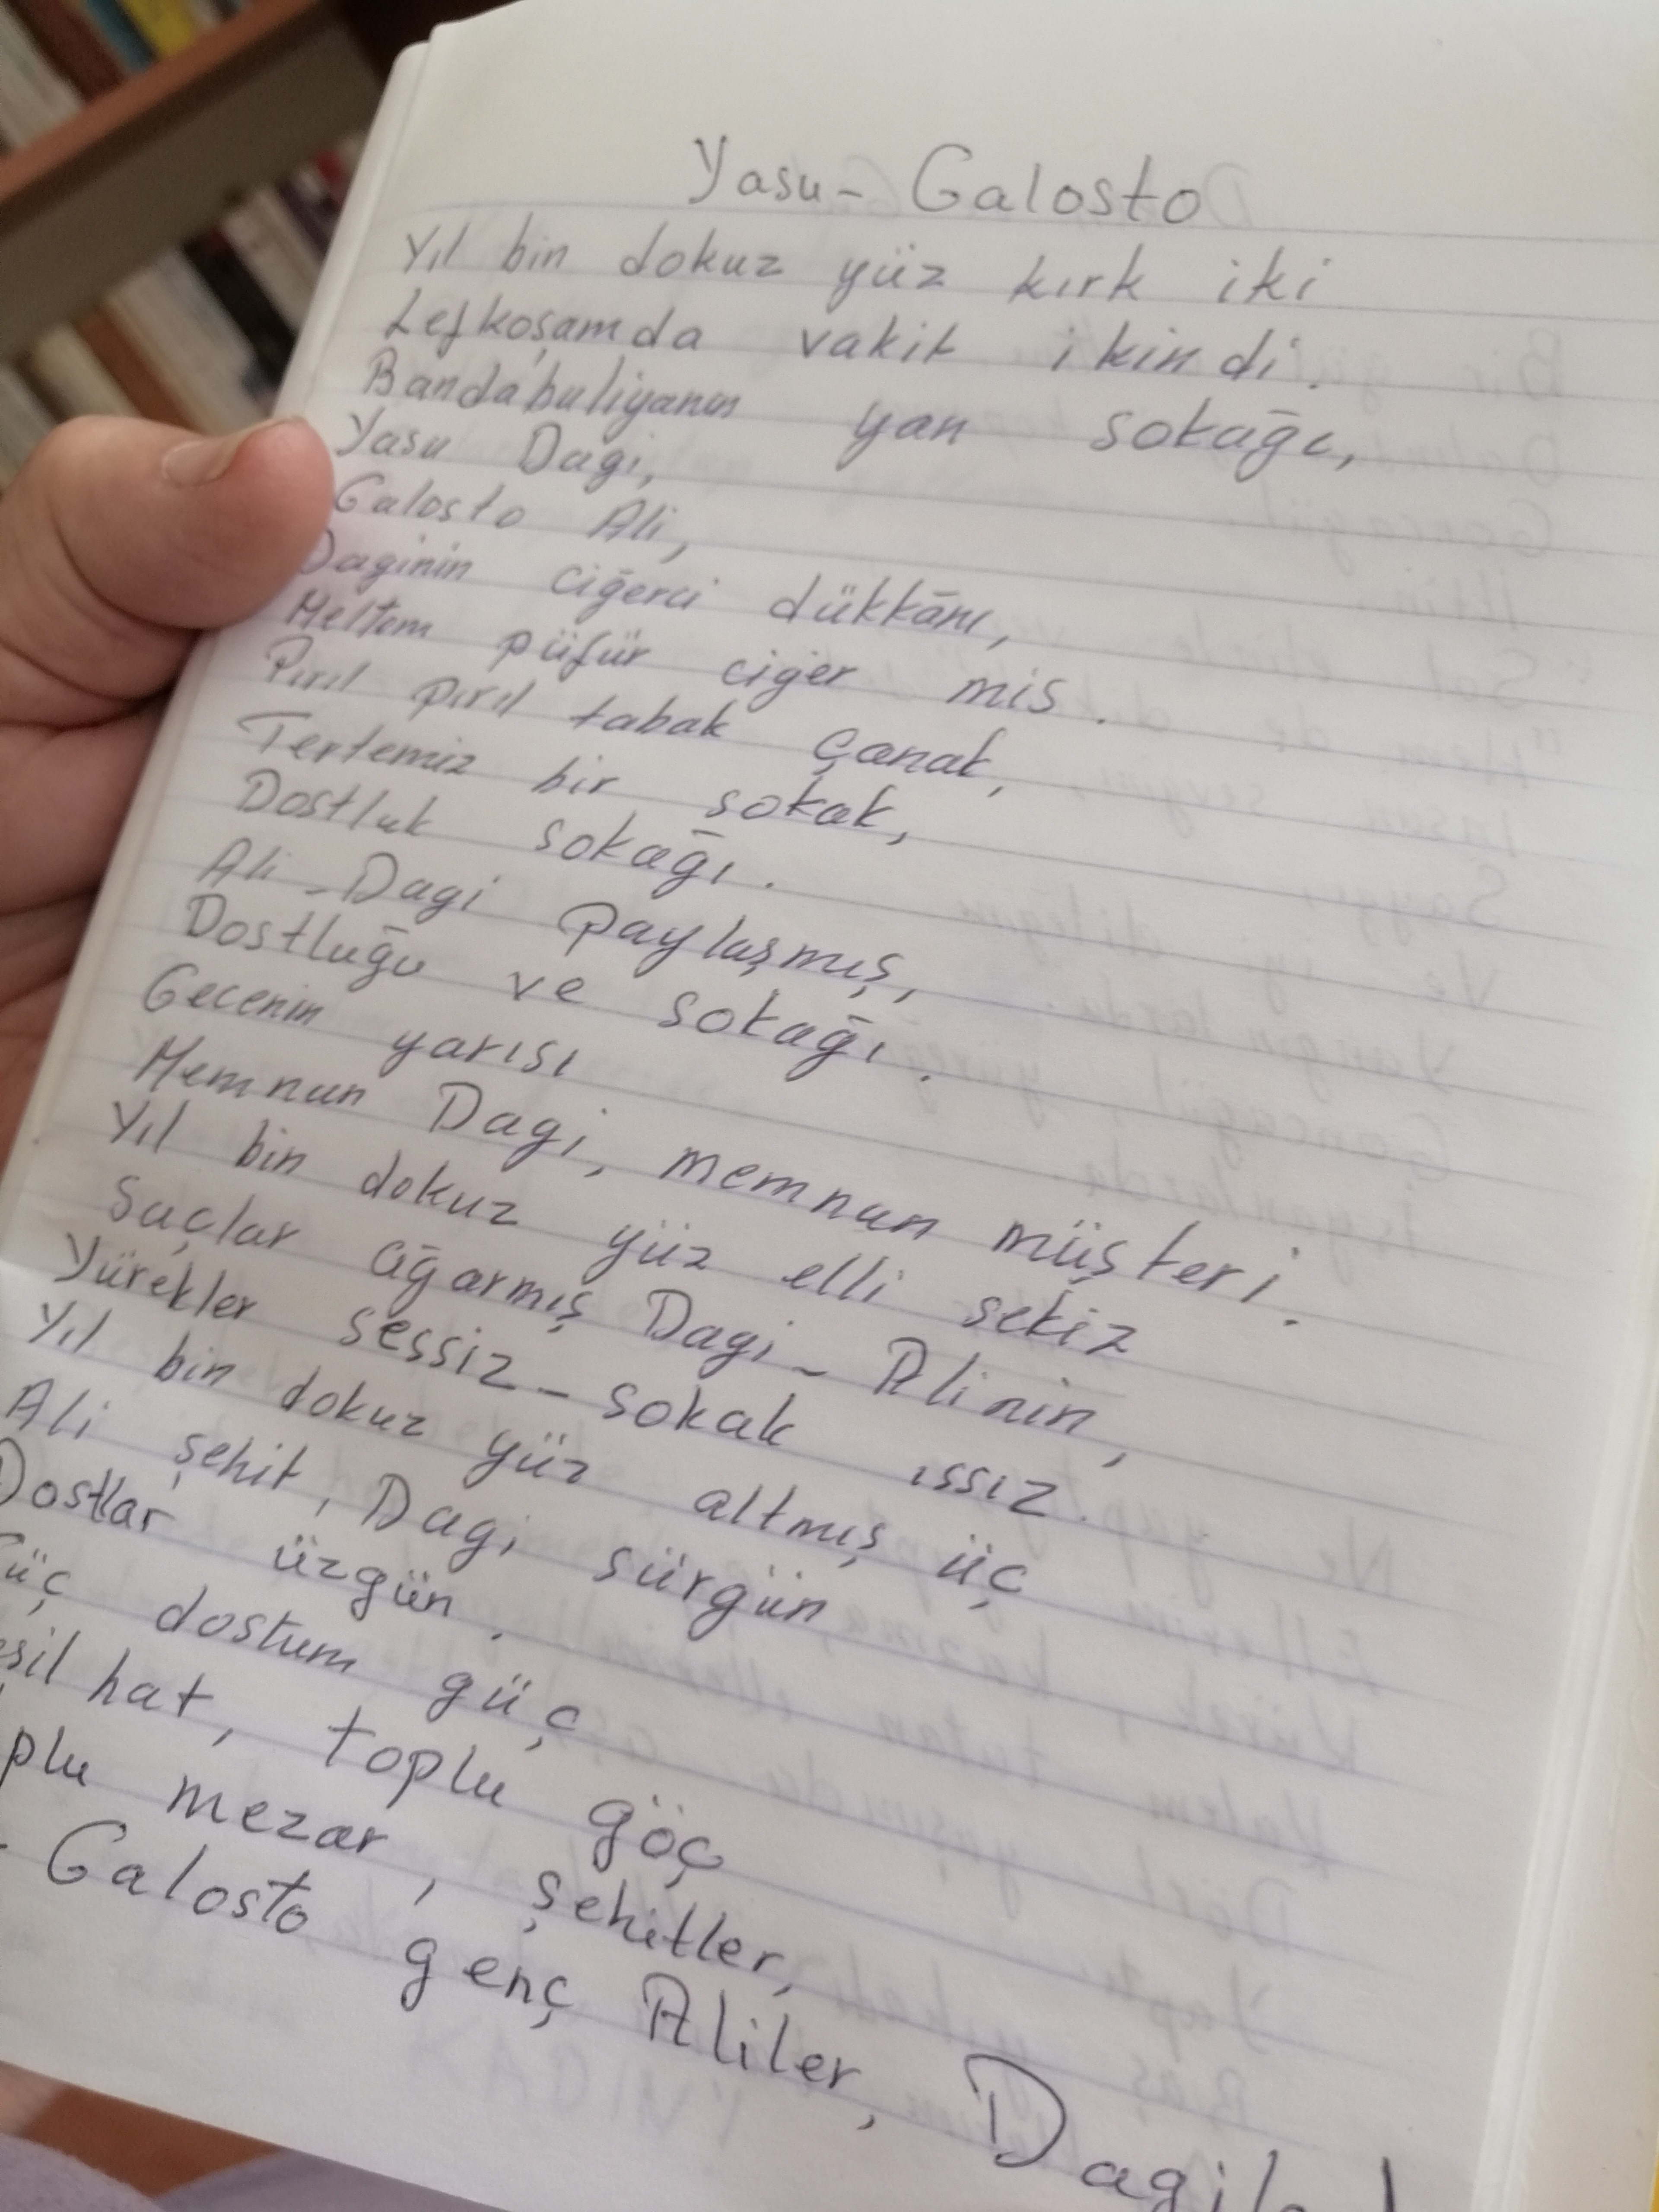 Yasu - Galosto
Yıl bin dokuz yüz kırk iki
Lefkoşamda vakit ikindi.
Bandabuliyanın yan sokağı,
Yasu Dagi,
Galosto Ali,
Daginin ciğerci dükkânı,
Meltem püfür ciğer mis.
Pırıl pırıl tabak çanak,
Tertemiz bir sokak,
Dostluk sokağı.
Ali - Dagi paylaşmış,
Dostluğu ve sokağı.
Gecenin yarısı
Memnun Dagi, memnun müşteri.
Yıl bin dokuz yüz elli sekiz
Saçlar ağarmış Dagi - Alinin,
Yürekler sessiz - sokak ıssız.
Yıl bin dokuz yüz altmış üç
Ali şehit, Dagi sürgün
Dostlar üzgün.
dostum güç
hat, toplu göç
mezar, şehitler,
Galosto genç Aliler,